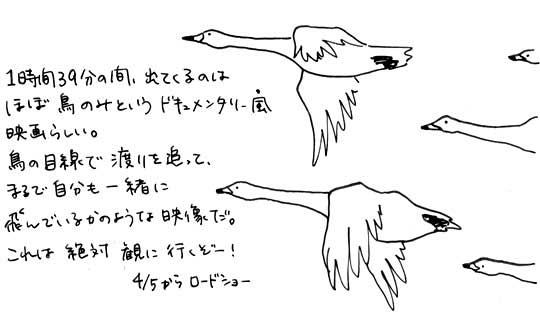 1時間39分の間、出てくるのは
ほぼ鳥のみというドキュメンタリー風
映画らしい。
鳥の目線で渡りを追って、
まるで自分も一緒に
飛んでいるかのような映像だ。
これは絶対観に行くぞー!
4/5からロードショー